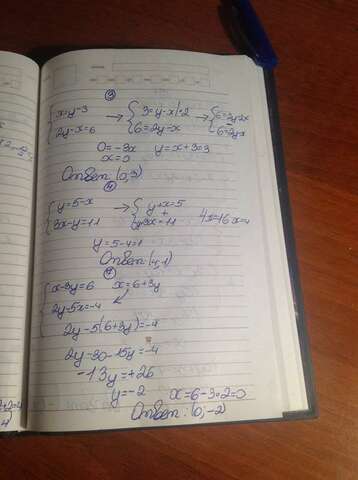 ③
{x=y-3 → {3=y-x |·2 → {6=2y-2x
{2y-x=6 {6=2y-x {6=2y-x
0=-3x y=x+3=3
x=0
Ответ (0,3)
④
{y=5-x → {y+x=5
{3x-y=11 {3x=11 4x=16 x=4
y=5-4=1
Ответ (4,1)
{x-3y=6 x=6+3y
{2y-5x=-4
2y-5(6+3y)=-4
2y-30-15y=-4
-13y=+26
y=-2 x=6-3·2=0
Ответ: (0,-2)